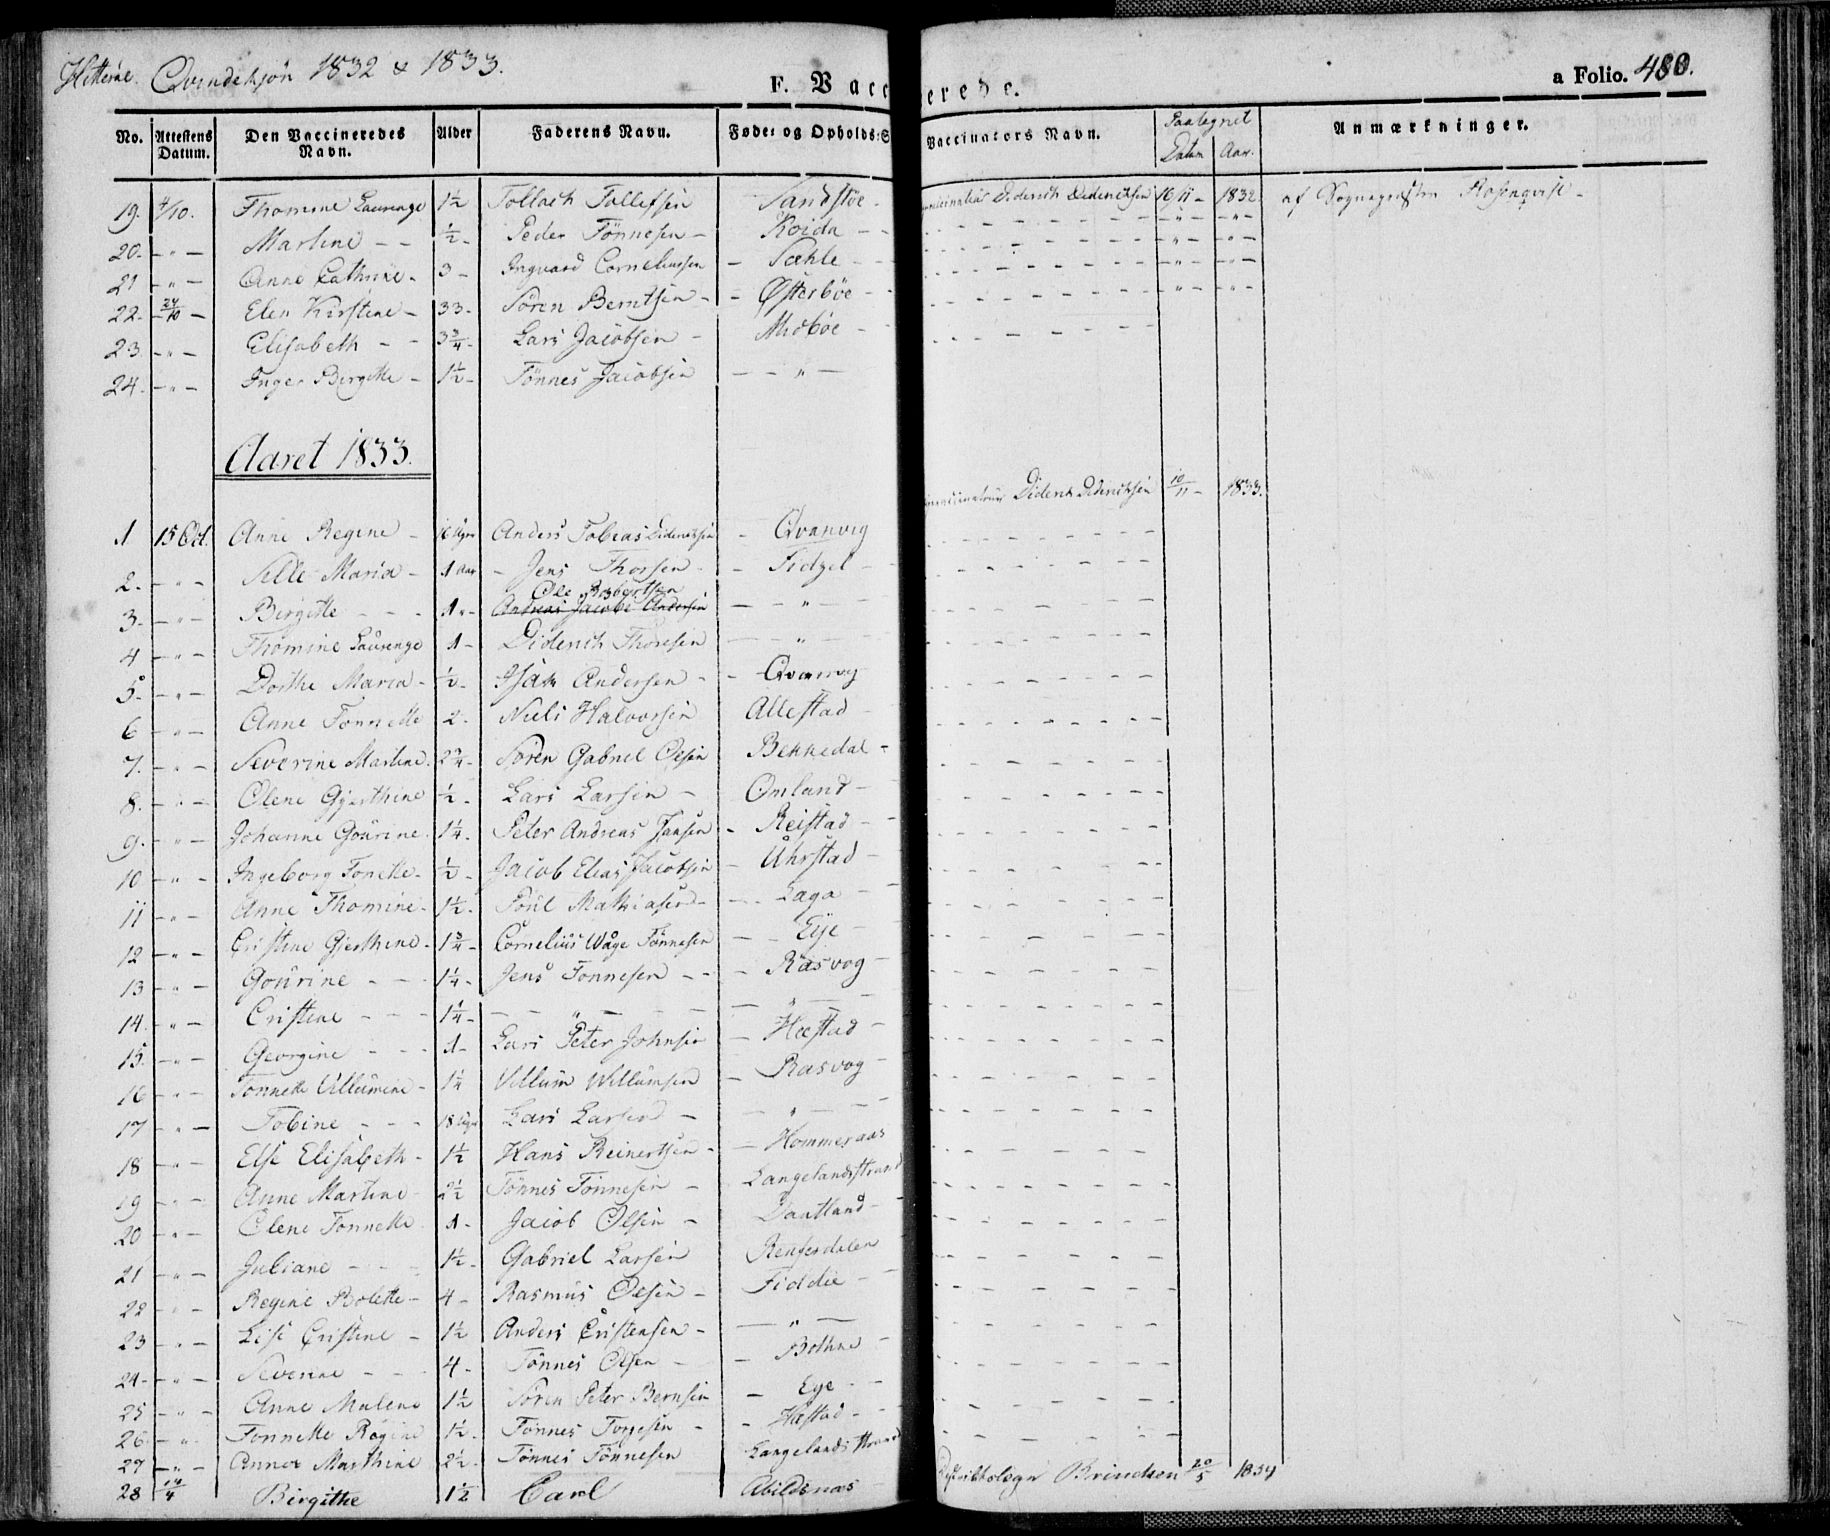 Hitterøe. Qvindekjøn 1832 & 1833.
F. Vaccinerede.
a Folio. 480.
No. Attestens Datum. Den Vaccineredes Navn. Alder Faderens Navn. Føde- og Opholds-S Vaccinators Navn. Paategnet Datum Aar. Anmærkninger.
19. 4/10. Thomine Laurenze 1½ Tollach Tollefsen Sandstøe - Diderich Diderichsen 16/11 - 1832 af Sognepræsten Rosenqvist -
20. - " - Martine - - ½ - Peder Tönnesen - Roida - - - " - - " -
21 - " - Anne Cathrine - 3 - Ingvard Corneliussen - Sæhle - - " - - " -
22. 24/10 - Elen Kirstine - 33 - Sören Berntsen - - Østerbøe - - " - - " -
23. - " - Elisabeth - - 3¾ - Lars Jacobsen - Midbøe -
24. - " - Inger Birgitte - 1½ - Tönnes Jacobsen - - " -
Aaret 1833.
Diderich Diderichsen 10/11 - 1833.
1 15 Oct. Anne Regine - 16 Uger Anders Tobias Diderichsen - Qvanvig
2. - " - Sille Maria - 1 Aar - Jens Thorsen - - Fidzel -
3. - " - Birgitte - - - 1 " - Ole Robertsen Andreas Jacob Andersen - - " -
4 - " - Thomine Laurenze 1 - Diderich Thorsen - - " -
5. - " - Dorthe Maria - ½ - Isak Andersen - - Qvanvig
6 - " - Anne Tonnette 2 - Niels Halvorsen Allestad -
7. - " - Severine Martine. 2¾ - Sören Gabriel Olsen Bekkedal -
8. - " - Olene Gjerthine ½ - Lars Larsen - Omland -
9. - " - Johanne Gourine. 1¼ - Peter Andreas Jansen - Reistad -
10 - " - Ingeborg Tonette - ½ - Jacob Elias Jacobsen - Uhrstad -
11 - " - Anne Thomine - 1½ - Poul Mathiasen - - Laga -
12 - " - Cristine Gjerthine - 1¾ - Cornelius Wage Tönnesen - Eye -
13 - " - Gourine - - 1¼ - Jens Tonnesen - - - Rasvog -
14. - " - Cristine - - - 1¼ - - - " - - - - " -
15. - " - Georgine - - - 1 - Lars Peter Johnsen - Hæstad -
16 - " - Tonnette Villumine - 1¼ Villum Willumsen - Rasvog -
17 - " - Tobine - - - 18 Uger Lars Larsen - - " -
18 - " - Else Elisabeth - 1½ Hans Reinertsen - - Hommeraas
19 - " - Anne Martine - 2½ Tönnes Tönnesen - Langelandsstrand
20 - " - Olene Tonnette 1 - Jacob Olsen - Dautland -
21 - " - Juliane - - - 1½ - Gabriel Larsen
22 - " - Regine Bolette - 4 - Rasmus Olsen - Fiddie -
23 - " - Lise Cristine - 1½ Anders Cristensen - - " -
24 - " - Severine - - - 4 - Tönnes Olsen - - Bothne -
25 - " - Anne Malene 1½ Sören Peter Bernsen - Eye - -
26 - " - Tonnette Regine 1½ - Tönnes Torjesen - - Hæstad - -
27 - " - Anne Marthine 2½ - Tönnes Tönnesen Langelandsstrand
28 14/4 Birgithe 1½ Carl Abildsnæs Brinchsen 20/5 1834